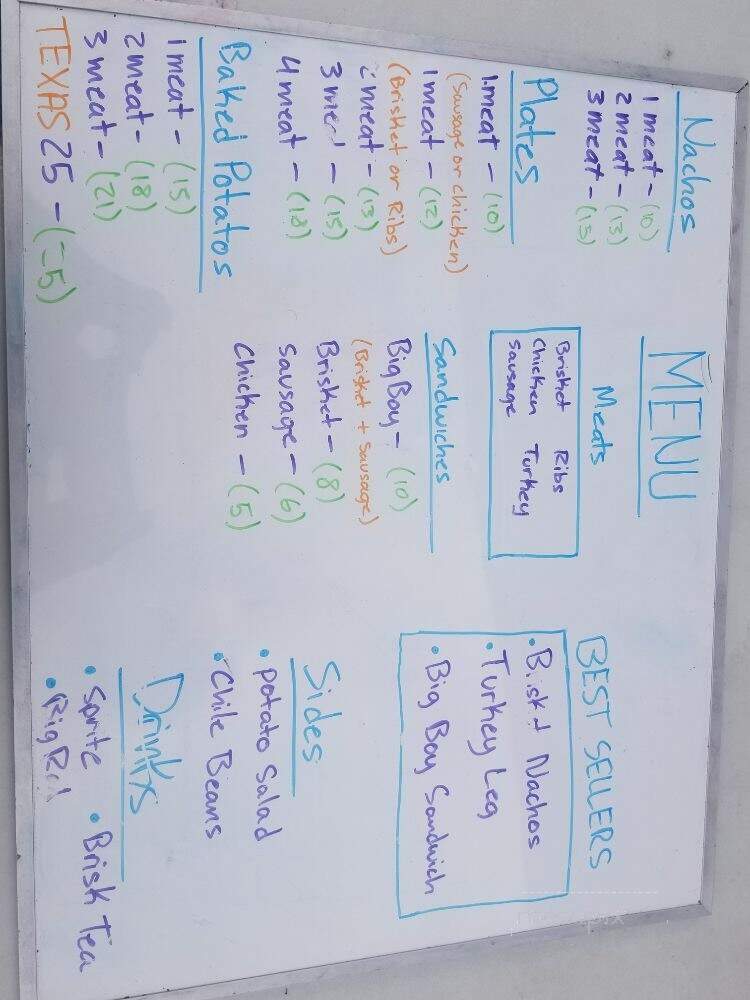 MENU
Nachos
1 meat - (10)
2 meat - (13)
3 meat - (15)
Plates
1 meat - (10)
(Sausage or chicken)
1 meat - (12)
(Brisket or Ribs)
2 meat - (13)
3 meat - (15)
4 meat - (18)
Baked Potatos
1 meat - (15)
2 meat - (18)
3 meat - (21)
TEXAS 25 - (25)
Meats
Brisket Ribs
Chicken Turkey
Sausage
Sandwiches
Big Boy - (10)
(Brisket + Sausage)
Brisket - (8)
Sausage - (6)
Chicken - (5)
BEST SELLERS
• Briskt Nachos
• Turkey Leg
• Big Boy Sandwich
Sides
• Potato Salad
• Chile Beans
Drinks
• Sprite • Brisk Tea
• Big Red